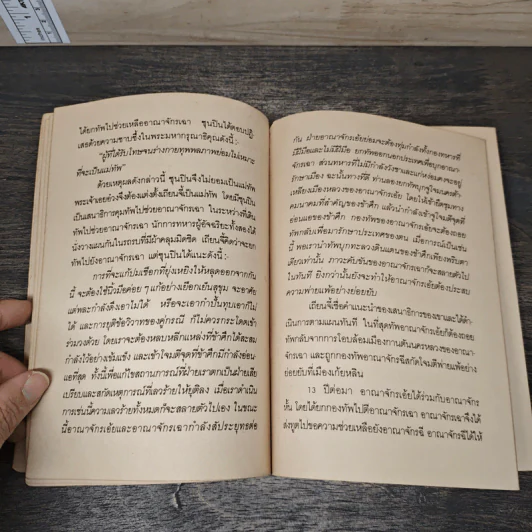 ได้ยกทัพไปช่วยเหลืออาณาจักรเฉา ซุนปินได้ตอบปฏิ-
เสธด้วยความซาบซึ้งในพระมหากรุณาธิคุณดังนี้ :
"ผู้ที่ได้รับโทษจนร่างกายทุพพลภาพย่อมไม่เหมาะ
ที่จะเป็นแม่ทัพ"
ด้วยเหตุผลดังกล่าวนี้ ซุนปินจึงไม่ยอมเป็นแม่ทัพ
พระเจ้าเอยอ๋วงจึงต้องแต่งตั้งเถียนจี้เป็นแม่ทัพ โดยมีซุนปิน
เป็นเสนาธิการคุมทัพไปช่วยอาณาจักรเฉา ในระหว่างที่เดิน
ทัพไปช่วยอาณาจักรเฉา นักการทหารผู้อัจฉริยะทั้งสองได้
นั่งวางแผนกันในรถรบที่มีผ้าคลุมมิดชิด เถียนจี้คิดว่าจะยก
ทัพไปยังอาณาจักรเฉา แต่ซุนปินได้แนะดังนี้ :-
การที่จะแก้ปมเชือกที่ยุ่งเหยิงให้หลุดออกจากกัน
นี้ จะต้องใช้นิ้วมือค่อย ๆ แก้อย่างเยือกเย็นสุขุม จะอาศัย
แต่พละกำลังดึงเอาไม่ได้ หรือจะเอากำปั้นทุบเอาก็ไม่
ได้ และการยุติข้อวิวาทของคู่กรณี ก็ไม่ควรกระโดดเข้า
ร่วมวงด้วย โดยเราจะต้องหลบหลีกแหล่งที่ข้าศึกได้สะสม
กำลังไว้อย่างเข้มแข็ง และเข้าโจมตีจุดที่ข้าศึกมีกำลังอ่อน-
แอที่สุด ทั้งนี้เพื่อแก้ไขสถานการณ์ที่ฝ่ายเราตกเป็นฝ่ายเสีย
เปรียบและสกัดเหตุการณ์ที่เลวร้ายให้ยุติลง เมื่อเราดำเนิน
การเช่นนี้ความเลวร้ายทั้งหมดก็จะสลายตัวไปเอง ในขณะ
นี้อาณาจักรเอ้ยและอาณาจักรเฉากำลังสัประยุทธต่อ
กัน ฝ่ายอาณาจักรเอ้ยย่อมจะต้องทุ่มกำลังทั้งกองทหารที่
มีฝีมือและไม่มีฝีมือ ยกทัพออกนอกประเทศเพื่อบุกอาณา-
จักรเฉา ส่วนทหารที่ไม่มีกำลังวังชาและแก่หง่อมคงจะอยู่
รักษาเมือง ฉะนั้นทางที่ดี ท่านลองยกทัพบุกจู่โจมนครต้า-
เหลียงเมืองหลวงของอาณาจักรเอ้ย โดยให้เข้ายึดชุมทาง
คมนาคมที่สำคัญของข้าศึก แล้วนำกำลังเข้าจู่โจมตีจุดที่
อ่อนแอของข้าศึก กองทัพของอาณาจักรเอ้ยจะต้องถอย
ทัพกลับเพื่อมารักษาประเทศของตน เมื่อการณ์เป็นเช่น
นี้ พอเรานำทัพบุกทะลวงดินแดนของข้าศึกเพียงพริบตา
เดียวเท่านั้น ภาวะคับขันของอาณาจักรเฉาก็จะสลายตัวไป
ในทันที ยิ่งกว่านั้นยังจะทำให้อาณาจักรเอ้ยต้องประสบ
ความพ่ายแพ้อย่างย่อยยับ
เถียนจี้เชื่อคำแนะนำของเสนาธิการของเขาและได้ดำ-
เนินการตามแผนทันที ในที่สุดทัพอาณาจักรเอ้ยก็ต้องถอย
ทัพกลับจากการโอบล้อมเมืองหานตันนครหลวงของอาณา
จักรเฉา และถูกกองทัพอาณาจักรฉีสกัดโจมตีพ่ายแพ้อย่าง
ย่อยยับที่เมืองเก้ยหลิน
13 ปีต่อมา อาณาจักรเอ้ยได้ร่วมกับอาณาจักร
หั้น โดยได้ยกกองทัพไปตีอาณาจักรเฉา อาณาจักรเฉาจึงได้
ส่งทูตไปขอความช่วยเหลือยังอาณาจักรฉี อาณาจักรฉีได้ให้